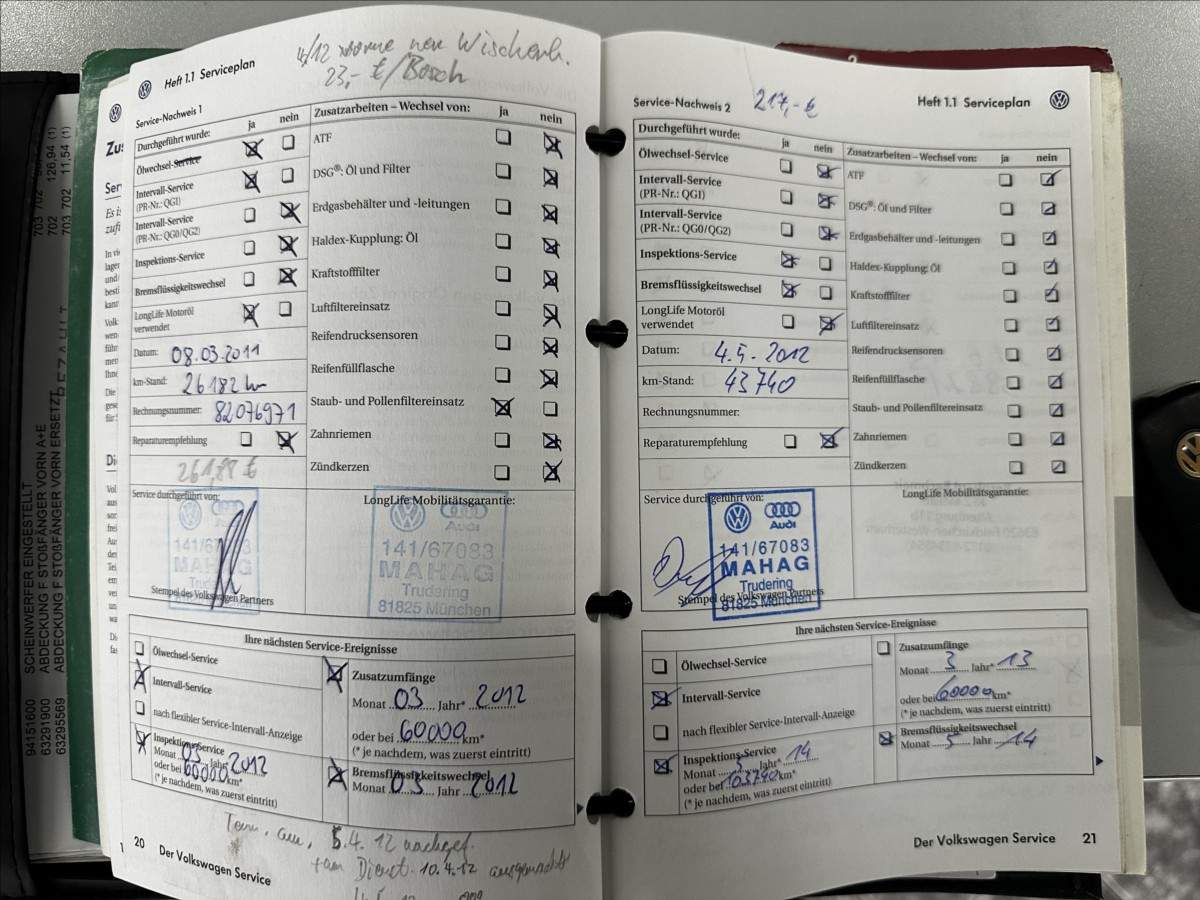 4/12 vorne neu Wischerbl.
23,- €/Bosch
Heft 1.1 Serviceplan
Service-Nachweis 1
Durchgeführt wurde:
ja
nein
Ölwechsel-Service
Intervall-Service
(PR-Nr.: QG1)
Intervall-Service
(PR-Nr.: QG0/QG2)
Inspektions-Service
Bremsflüssigkeitswechsel
LongLife Motoröl
verwendet
Datum: 08.03.2011
km-Stand: 26182 km
Rechnungsnummer: 82076971
Reparaturempfehlung
261,88 €
Zusatzarbeiten – Wechsel von:
ja
nein
ATF
DSG®: Öl und Filter
Erdgasbehälter und -leitungen
Haldex-Kupplung: Öl
Kraftstofffilter
Luftfiltereinsatz
Reifendrucksensoren
Reifenfüllflasche
Staub- und Pollenfiltereinsatz
Zahnriemen
Zündkerzen
Service durchgeführt von:
Audi
141/67083
MAHAG
Trudering
81825 München
Stempel des Volkswagen Partners
LongLife Mobilitätsgarantie:
Audi
141/67083
MAHAG
Trudering
81825 München
Ihre nächsten Service-Ereignisse
Ölwechsel-Service
Intervall-Service
nach flexibler Service-Intervall-Anzeige
Inspektions-Service
Monat 03 Jahr* 2012
oder bei 60000 km*
(* je nachdem, was zuerst eintritt)
Zusatzumfänge
Monat 03 Jahr* 2012
oder bei 60000 km*
(* je nachdem, was zuerst eintritt)
Bremsflüssigkeitswechsel
Monat 03 Jahr 2012
5.4.12
Dienst. 10.4.12 ausgemacht
20
Der Volkswagen Service
Service-Nachweis 2
217,- €
Heft 1.1 Serviceplan
Durchgeführt wurde:
ja
nein
Ölwechsel-Service
Intervall-Service
(PR-Nr.: QG1)
Intervall-Service
(PR-Nr.: QG0/QG2)
Inspektions-Service
Bremsflüssigkeitswechsel
LongLife Motoröl
verwendet
Datum: 4.5.2012
km-Stand: 43740
Rechnungsnummer:
Reparaturempfehlung
Zusatzarbeiten – Wechsel von:
ja
nein
ATF
DSG®: Öl und Filter
Erdgasbehälter und -leitungen
Haldex-Kupplung: Öl
Kraftstofffilter
Luftfiltereinsatz
Reifendrucksensoren
Reifenfüllflasche
Staub- und Pollenfiltereinsatz
Zahnriemen
Zündkerzen
Service durchgeführt von:
Audi
141/67083
MAHAG
Trudering
81825 München
Stempel des Volkswagen Partners
LongLife Mobilitätsgarantie:
Ihre nächsten Service-Ereignisse
Ölwechsel-Service
Intervall-Service
nach flexibler Service-Intervall-Anzeige
Inspektions-Service
Monat 5 Jahr* 14
oder bei 103740 km*
(* je nachdem, was zuerst eintritt)
Zusatzumfänge
Monat 3 Jahr* 13
oder bei 60000 km*
(* je nachdem, was zuerst eintritt)
Bremsflüssigkeitswechsel
Monat 5 Jahr 14
Der Volkswagen Service
21
94151600 SCHEINWERFER EINGESTELLT
63291900 ABDECKUNG F STOßFÄNGER VORN A+E
63295569 ABDECKUNG F STOßFÄNGER VORN ERSETZT
702 126,94 (1)
703 702 11,54 (1)